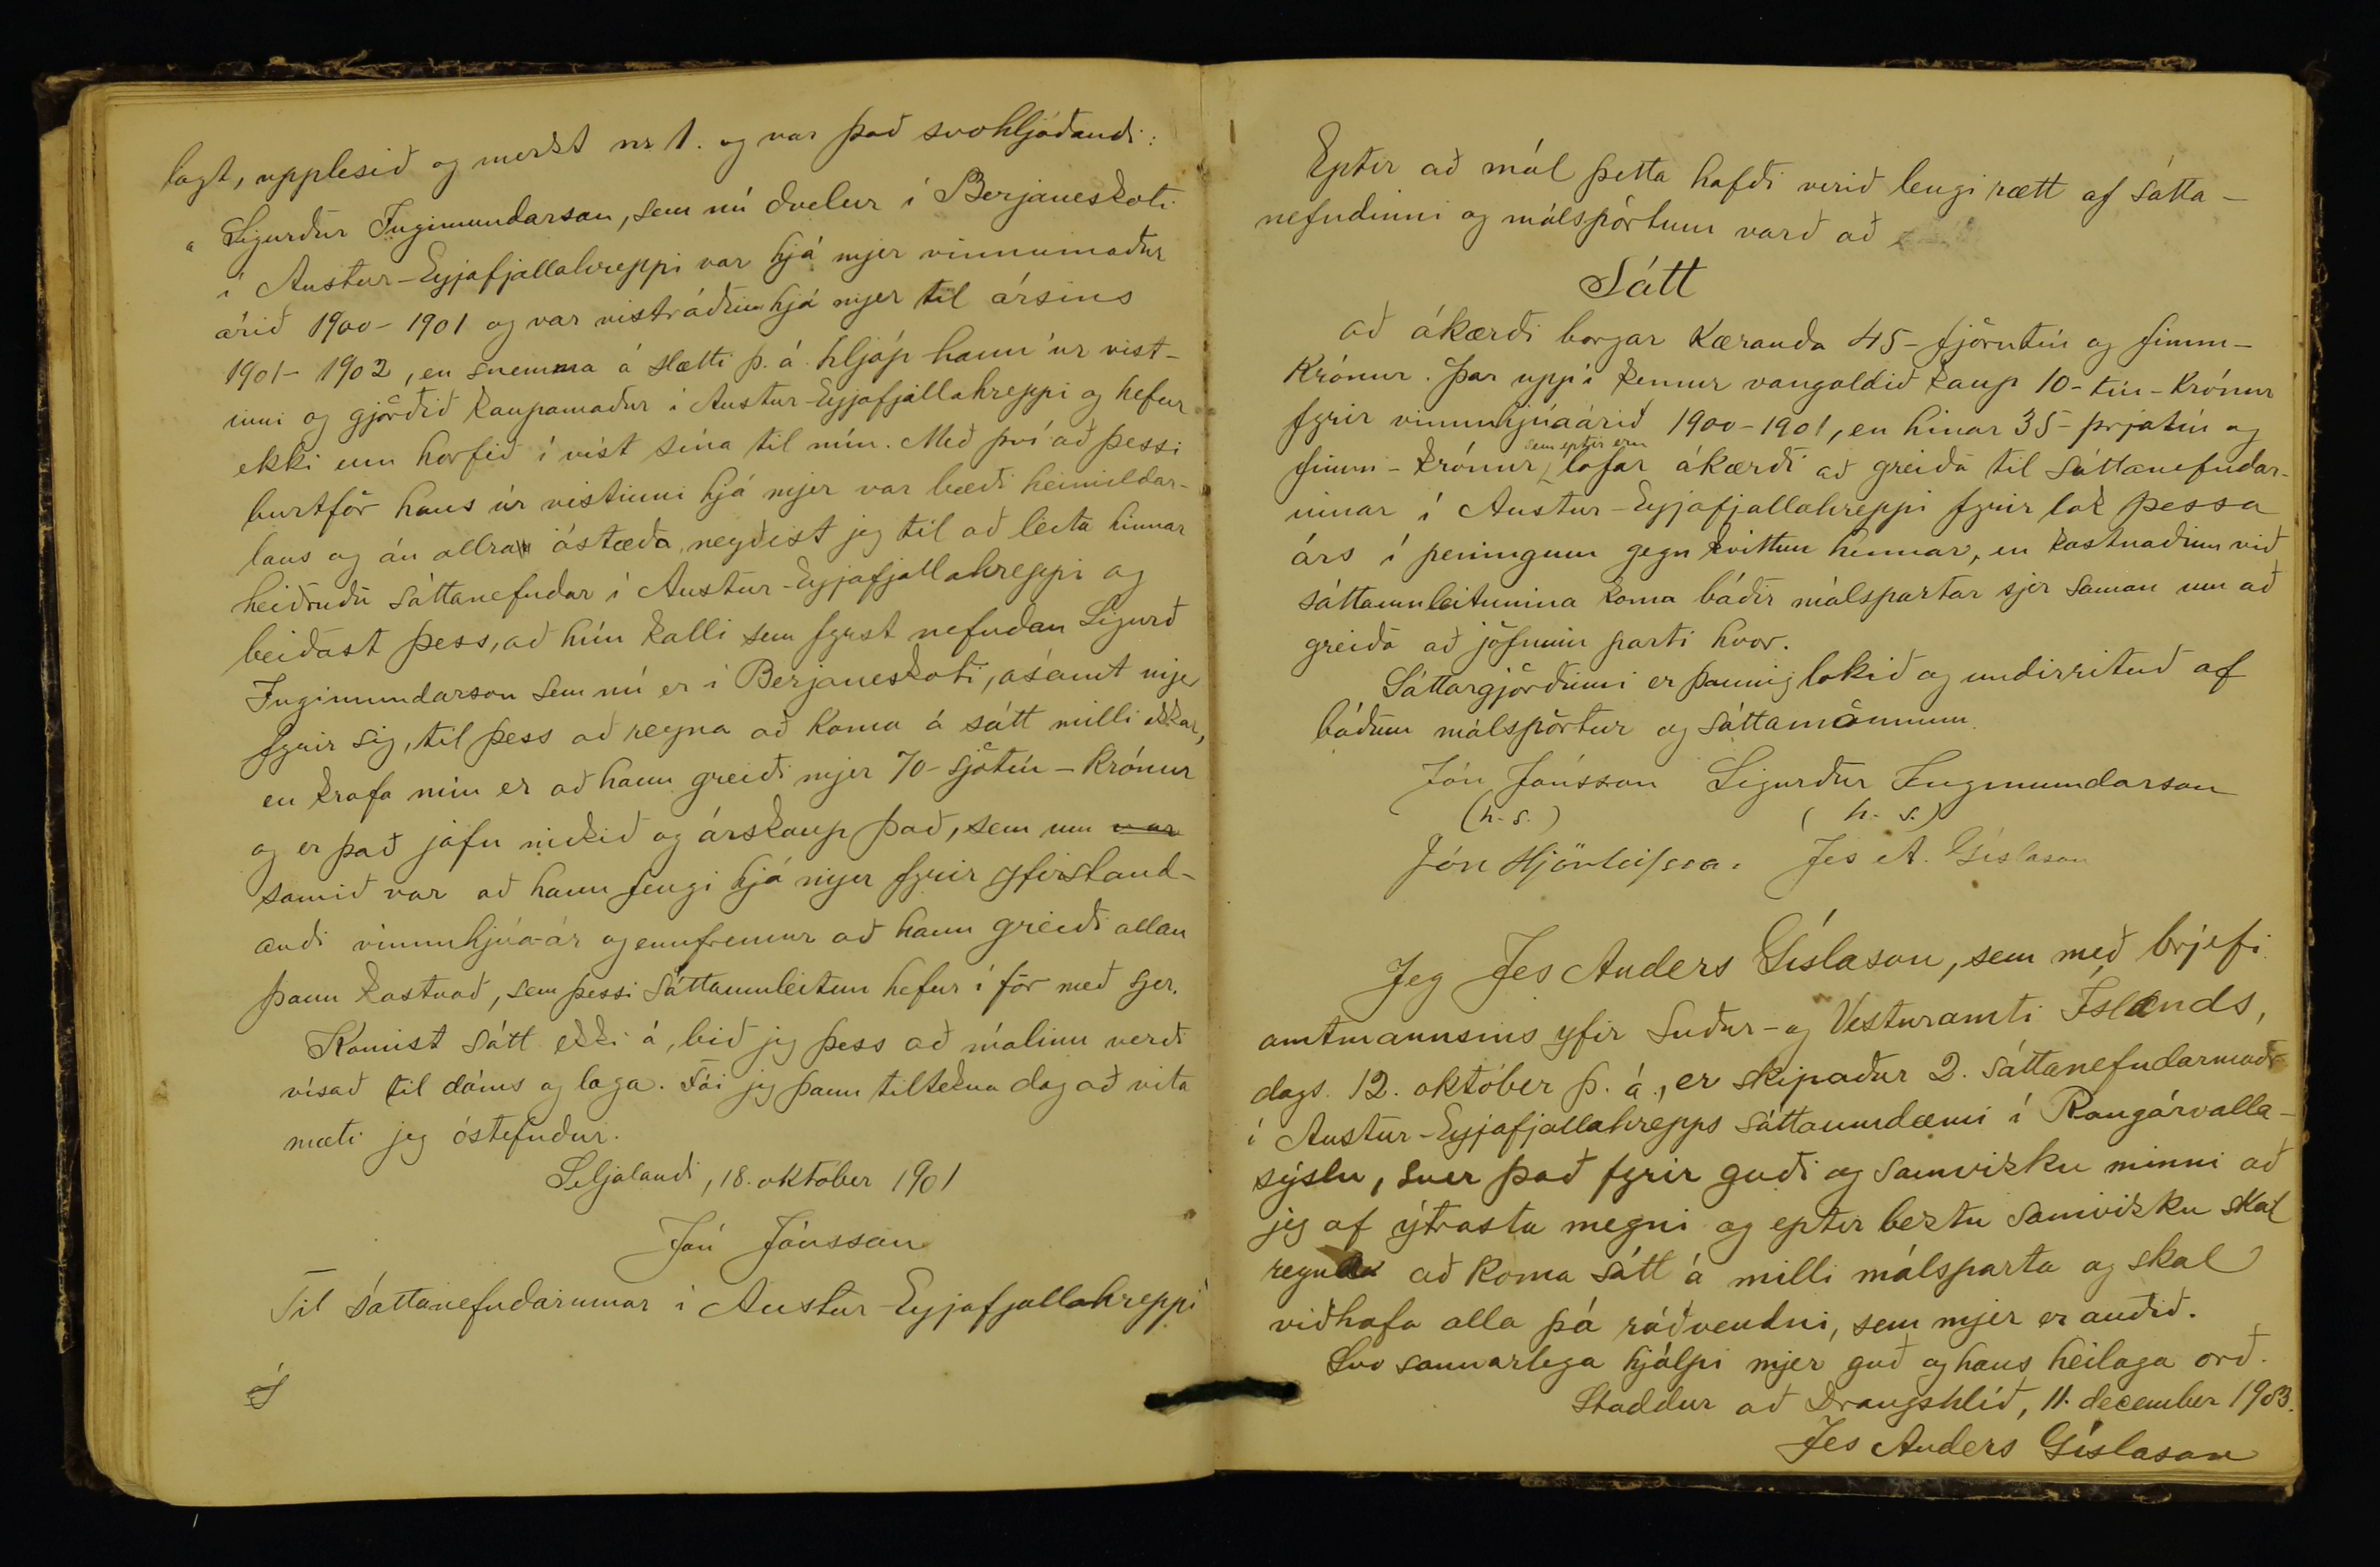 lagt, upplesið og merkt nr 1. og var það svohljóðandi:
„Sigurður Ingimundarson, sem nú dvelur í Berjaneskoti
í Austur-Eyjafjallahreppi var hjá mjer vinnumaður
árið 1900-1901 og var vistráðinn hjá mjer til ársins
1901-1902, en snemma á slætti þ. á. hljóp hann úr vist-
inni og gjörðið kaupamaður í Austur-Eyjafjallahreppi og hefur
ekki enn horfið í vist sína til mín. Með því að þessi
burtför hans úr vistinni hjá mjer var bæði heimildar-
laus og án allra ástæða, neyðist jeg til að leita hinnar
heiðruðu sáttanefndar í Austur-Eyjafjallahreppi og
beiðast þess, að hún kalli sem fyrst nefndan Sigurð
Ingimundarson sem nú er í Berjaneskoti, ásamt mjer
fyrir sig, til þess að reyna að koma á sátt milli okkar,
en krafa mín er að hann greiði mjer 70-sjötíu-krónur
og er það jafn mikið og árskaup það, sem um var
samið var að hann fengi hjá mjer fyrir yfirstand-
andi vinnuhjúa-ár og ennfremur að hann greiði allan
þann kostnað, sem þessi sáttaumleitun hefur í för með sjer.
Komist sátt ekki á, bið jeg þess að málinu verði
vísað til dóms og laga. Fái jeg þann tiltekna dag að vita
mæti jeg óstefndur.
Seljalandi, 18. október 1901
Jón Jónsson
Til sáttanefndarinnar í Austur-Eyjafjallahreppi
Eptir að mál þetta hafði verið lengi rætt af sátta-
nefndinni og málspörtum varð að
Sátt
að ákærði borgar kæranda 45-fjörutíu og fimm-
krónur. Þar upp í kemur vangoldið kaup 10-tíu-krónur
fyrir vinnuhjúaárið 1900-1901, en hinar 35-þrjátíu og
fimm-krónur, sem eptir eru lofar ákærði að greiða til sáttanefndar-
innar í Austur-Eyjafjallahreppi fyrir lok þessa
árs í peningum gegn kvittun hennar, en kostnaðinn við
sáttaumleitunina koma báðir málspartar sjer saman um að
greiða að jöfnum parti hvor.
Sáttargjörðinni er þannig lokið og undirrituð af
báðum málspörtur og sáttamönnum.
Jón Jónsson Sigurður Ingimundarson
(h. s.) (h. s.)
Jón Hjörleifsson. Jes A. Gíslason
Jeg Jes Anders Gíslason, sem með brjefi
amtmannsins yfir Suður- og Vesturamti Íslands,
dags. 12. október þ. á., er skipaður 2. sáttanefndarmaðr
í Austur-Eyjafjallahrepps sáttaumdæmi í Rangárvalla-
sýslu, sver það fyrir guði og samvizku minni að
jeg af ýtrasta megni og eptir beztu samvizku skal
reyna að koma sátt á milli málsparta og skal
viðhafa alla þá ráðvendni, sem mjer er auðið.
Svo sannarlega hjálpi mjer guð og hans heilaga orð.
Staddur að Drangshlíð, 11. december 1903.
Jes Anders Gíslason